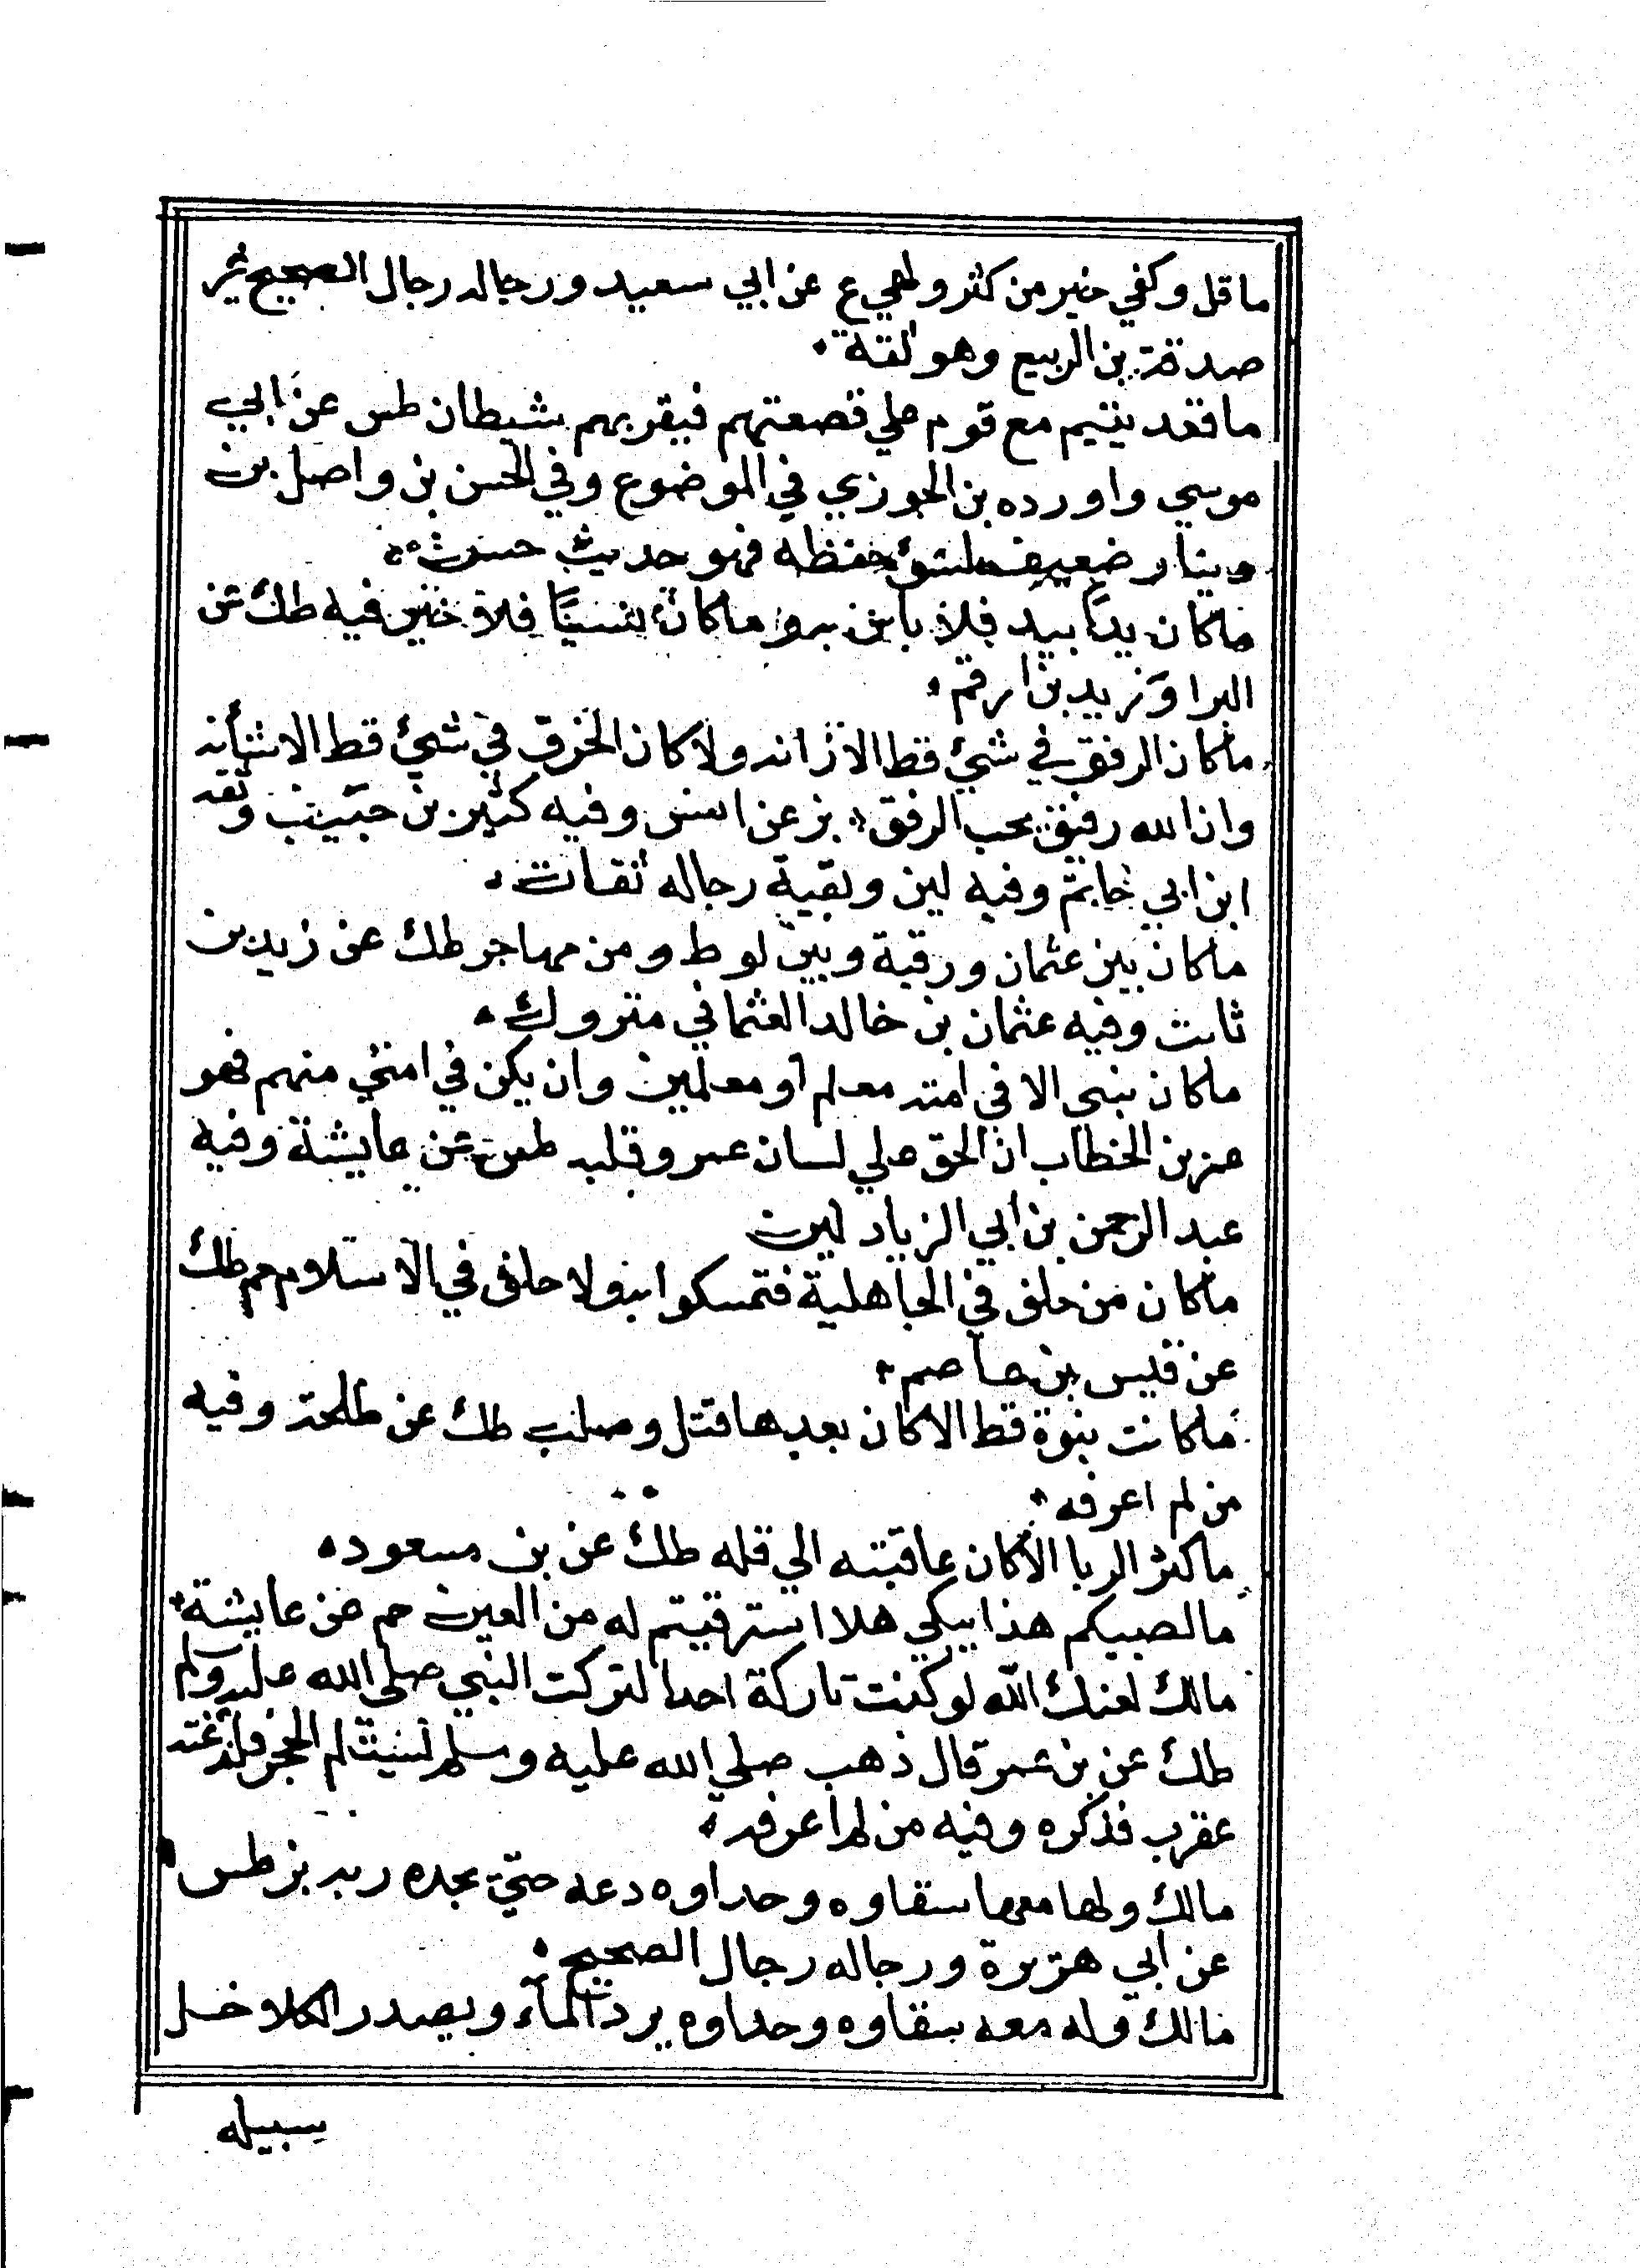 ما قل وكفي خير من كثر والهي ع عن ابي سعيد ورجاله رجال الصحيح غير
صدقة بن الربيع وهو ثقة
ما قعد يتيم مع قوم علي قصعتهم فيقربهم شيطان طس عن ابي
موسي واورده بن الجوزي في الموضوع وفي الحسن بن واصل بن
دينار ضعيف لسوء حفظه فهو حديث حسن
ماكان يدا بيد فلا باس به وماكان نسيا فلا خير فيه طك عن
البرا وزيد بن ارقم
ماكان الرفق في شيئ قط الا زانه ولا كان الخرق في شيئ قط الا شانه
وان الله رفيق يحب الرفق بز عن انس وفيه كثير بن حبيب وثقه
ابن ابي حاتم وفيه لين وبقية رجاله ثقات
ماكان بين عثمان ورقية وبين لوط ومن مهاجر طك عن زيد بن
ثابت وفيه عثمان بن خالد العثماني متروك
ماكان نبي الا في امته معلم او معلمين وان يكن في امتي منهم فهو
عمر بن الخطاب ان الحق علي لسان عمر وقلبه طس عن عايشة وفيه
عبد الرحمن بن ابي الزياد لين
ماكان من حلف في الجاهلية فتمسكوا به ولا حلف في الاسلام حم طك
عن قيس بن عاصم
ماكانت نبوة قط الا كان بعدها قتل وصلب طك عن طلحة وفيه
من لم اعرفه
ماكثر الربا الا كان عاقبته الي قله طك عن بن مسعود
مالصبيكم هذا يبكي هلا استرقيتم له من العين حم عن عايشة
مالك لعنك الله لو كنت تاركة احدا لتركت النبي صلي الله عليه وسلم
طك عن بن عمر قال ذهب صلي الله عليه وسلم الحجر فلدغته
عقرب فذكره وفيه من لم اعرفه
مالك ولها معها سقاوه وحداوه دعه حتي يجده ربه بز طس
عن ابي هريرة ورجاله رجال الصحيح
مالك وله معه سقاوه وحداوه يرد الماء ويصدر الكلا خل
سبيله